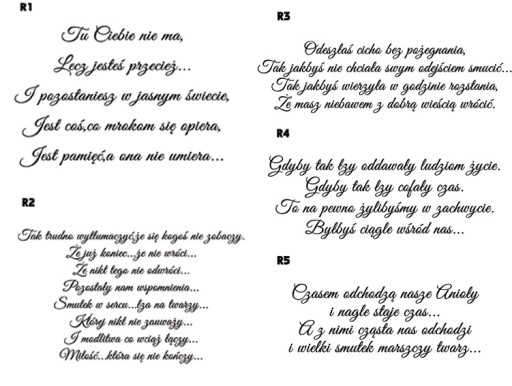 R1
Tu Ciebie nie ma,
Lecz jesteś przecież...
I pozostaniesz w jasnym świecie,
Jest coś,co mrokom się opiera,
Jest pamięć,a ona nie umiera...
R2
Tak trudno wytłumaczyć,że się kogoś nie zobaczy.
Że już koniec...że nie wróci...
Że nikt tego nie odwróci...
Pozostały nam wspomnienia...
Smutek w sercu...łza na twarzy...
Której nikt nie zauważy...
I modlitwa co wciąż łączy...
Miłość...która się nie kończy...
R3
Odeszłaś cicho bez pożegnania,
Tak jakbyś nie chciała swym odejściem smucić...
Tak jakbyś wierzyła w godzinie rozstania,
Że masz niebawem z dobrą wieścią wrócić.
R4
Gdyby tak łzy oddawały ludziom życie.
Gdyby tak łzy cofały czas.
To na pewno żylibyśmy w zachwycie.
Byłbyś ciągle wśród nas...
R5
Czasem odchodzą nasze Anioły
i nagle staje czas...
A z nimi cząsta nas odchodzi
i wielki smutek marszczy twarz...